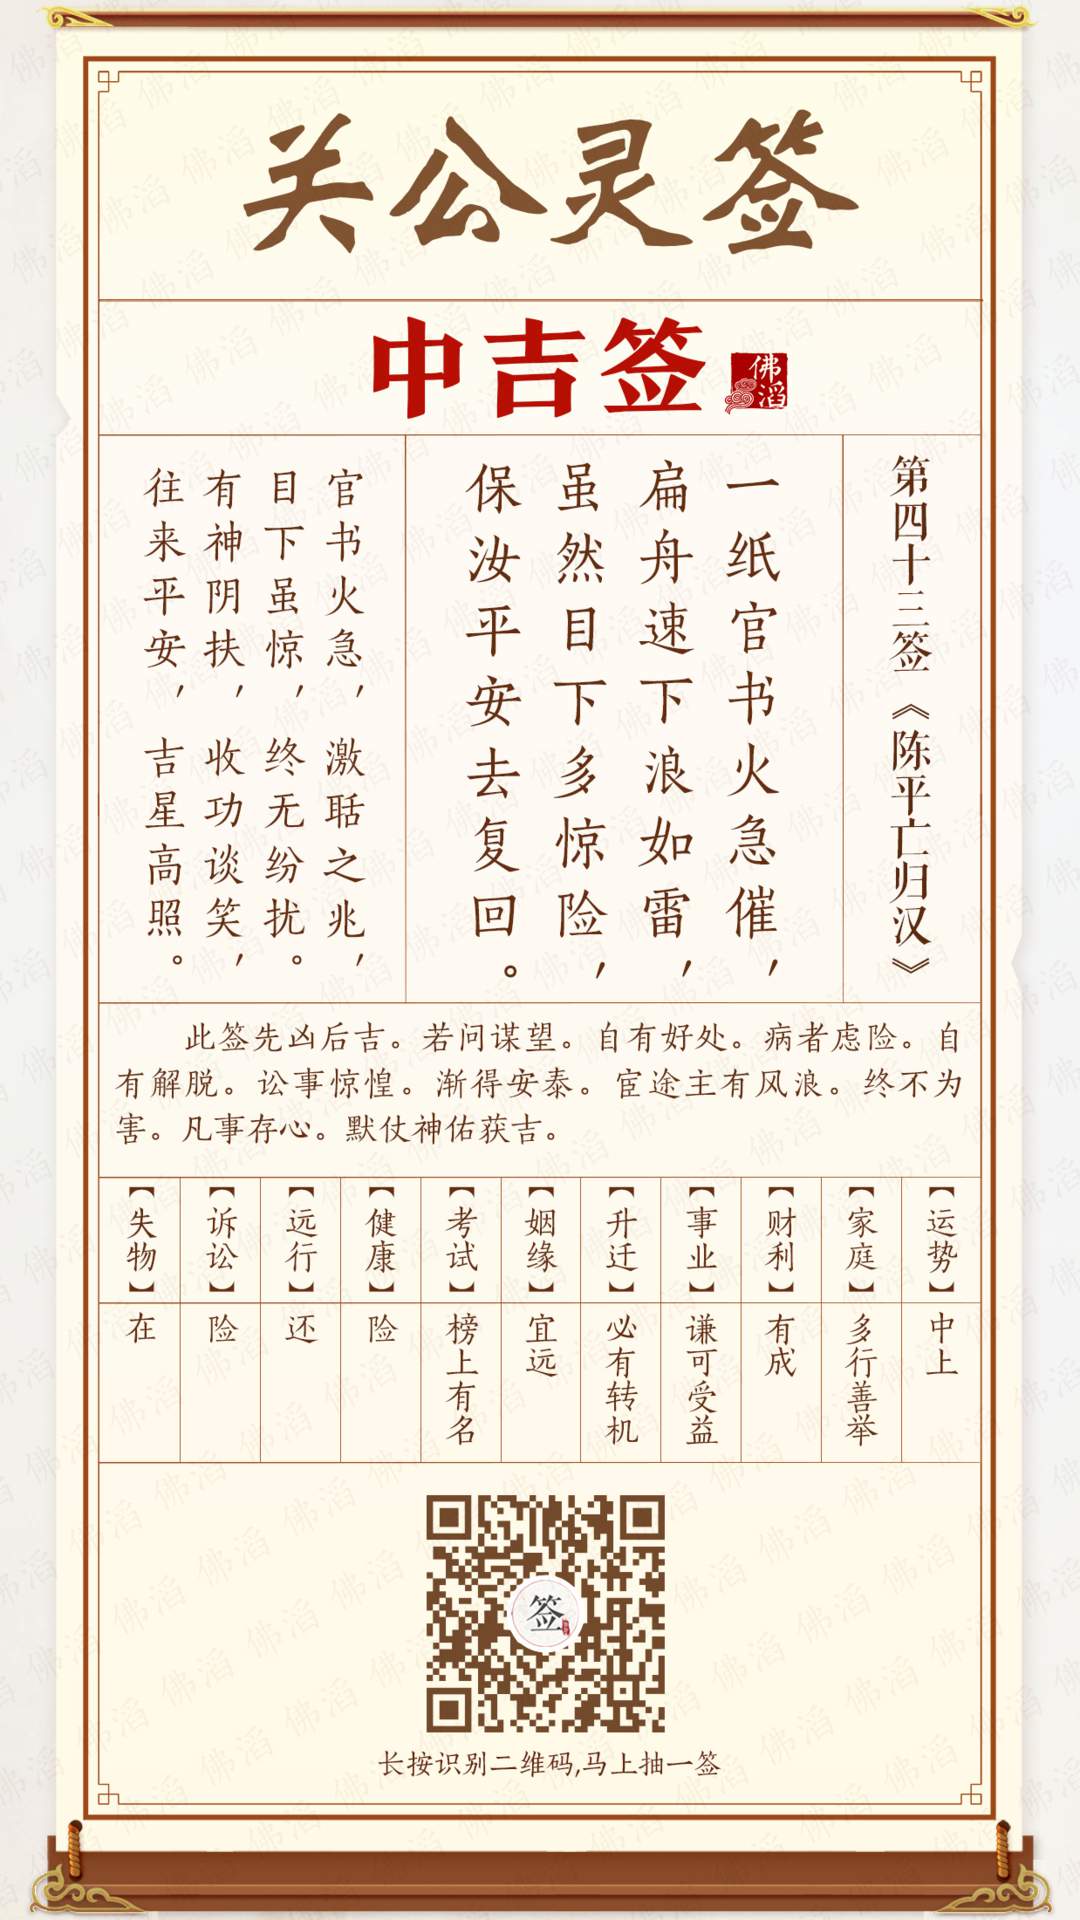 关公灵签
中吉签
佛滔
第四十三签《陈平亡归汉》
一纸官书火急催，
扁舟速下浪如雷，
虽然目下多惊险，
保汝平安去复回。
官书火急，激聒之兆，
目下虽惊，终无纷扰。
有神阴扶，收功谈笑，
往来平安，吉星高照。
此签先凶后吉。若问谋望。自有好处。病者虑险。自
有解脱。讼事惊惶。渐得安泰。宦途主有风浪。终不为
害。凡事存心。默仗神佑获吉。
【运势】中上
【家庭】多行善举
【财利】有成
【事业】谦可受益
【升迁】必有转机
【姻缘】宜远
【考试】榜上有名
【健康】险
【远行】还
【诉讼】险
【失物】在
签
长按识别二维码,马上抽一签